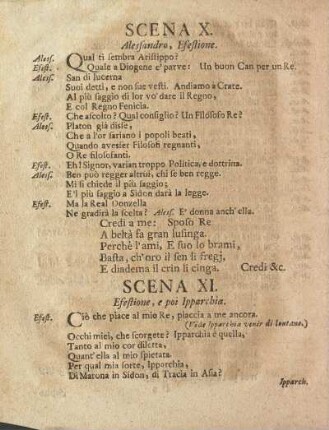 SCENA X.
Alessandro, Efestione.
Aless. Qual ti sembra Aristippo?
Efest. Quale a Diogene e' parve: Un buon Can per un Re.
Aless. San di lucerna
Suoi detti, e non sue vesti. Andiamo à Crate.
Al più saggio di lor vo' dare il Regno,
E col Regno Fenicia.
Efest. Che ascolto? Qual consiglio? Un Filosofo Re?
Aless. Platon già disse,
Che a l'or sariano i popoli beati,
Quando avesser Filosofi regnanti,
O Re filosofanti.
Efest. Eh! Signor, varian troppo Politica, e dottrina.
Aless. Ben può regger altrui, chi se ben regge.
Mi si chiede il più saggio;
E'l più saggio a Sidon darà la legge.
Efest. Ma la Real Donzella
Ne gradirà la scelta? Aless. E' donna anch'ella.
Credi a me: Sposo Re
A beltà fa gran lusinga.
Perchè l'ami, E suo lo brami,
Basta, ch'oro il sen li fregj,
E diadema il crin li cinga. Credi &c.
SCENA XI.
Efestione, e poi Ipparchia.
Efest. Ciò che piace al mio Re, piaccia a me ancora.
(Vide Ipparchia venir di lontano.)
Occhi miei, che scorgete? Ipparchia è quella,
Tanto al mio cor diletta,
Quant'ella al mio spietata.
Per qual mia sorte, Ipparchia,
Di Marona in Sidon, di Tracia in Asia?
Ipparch.